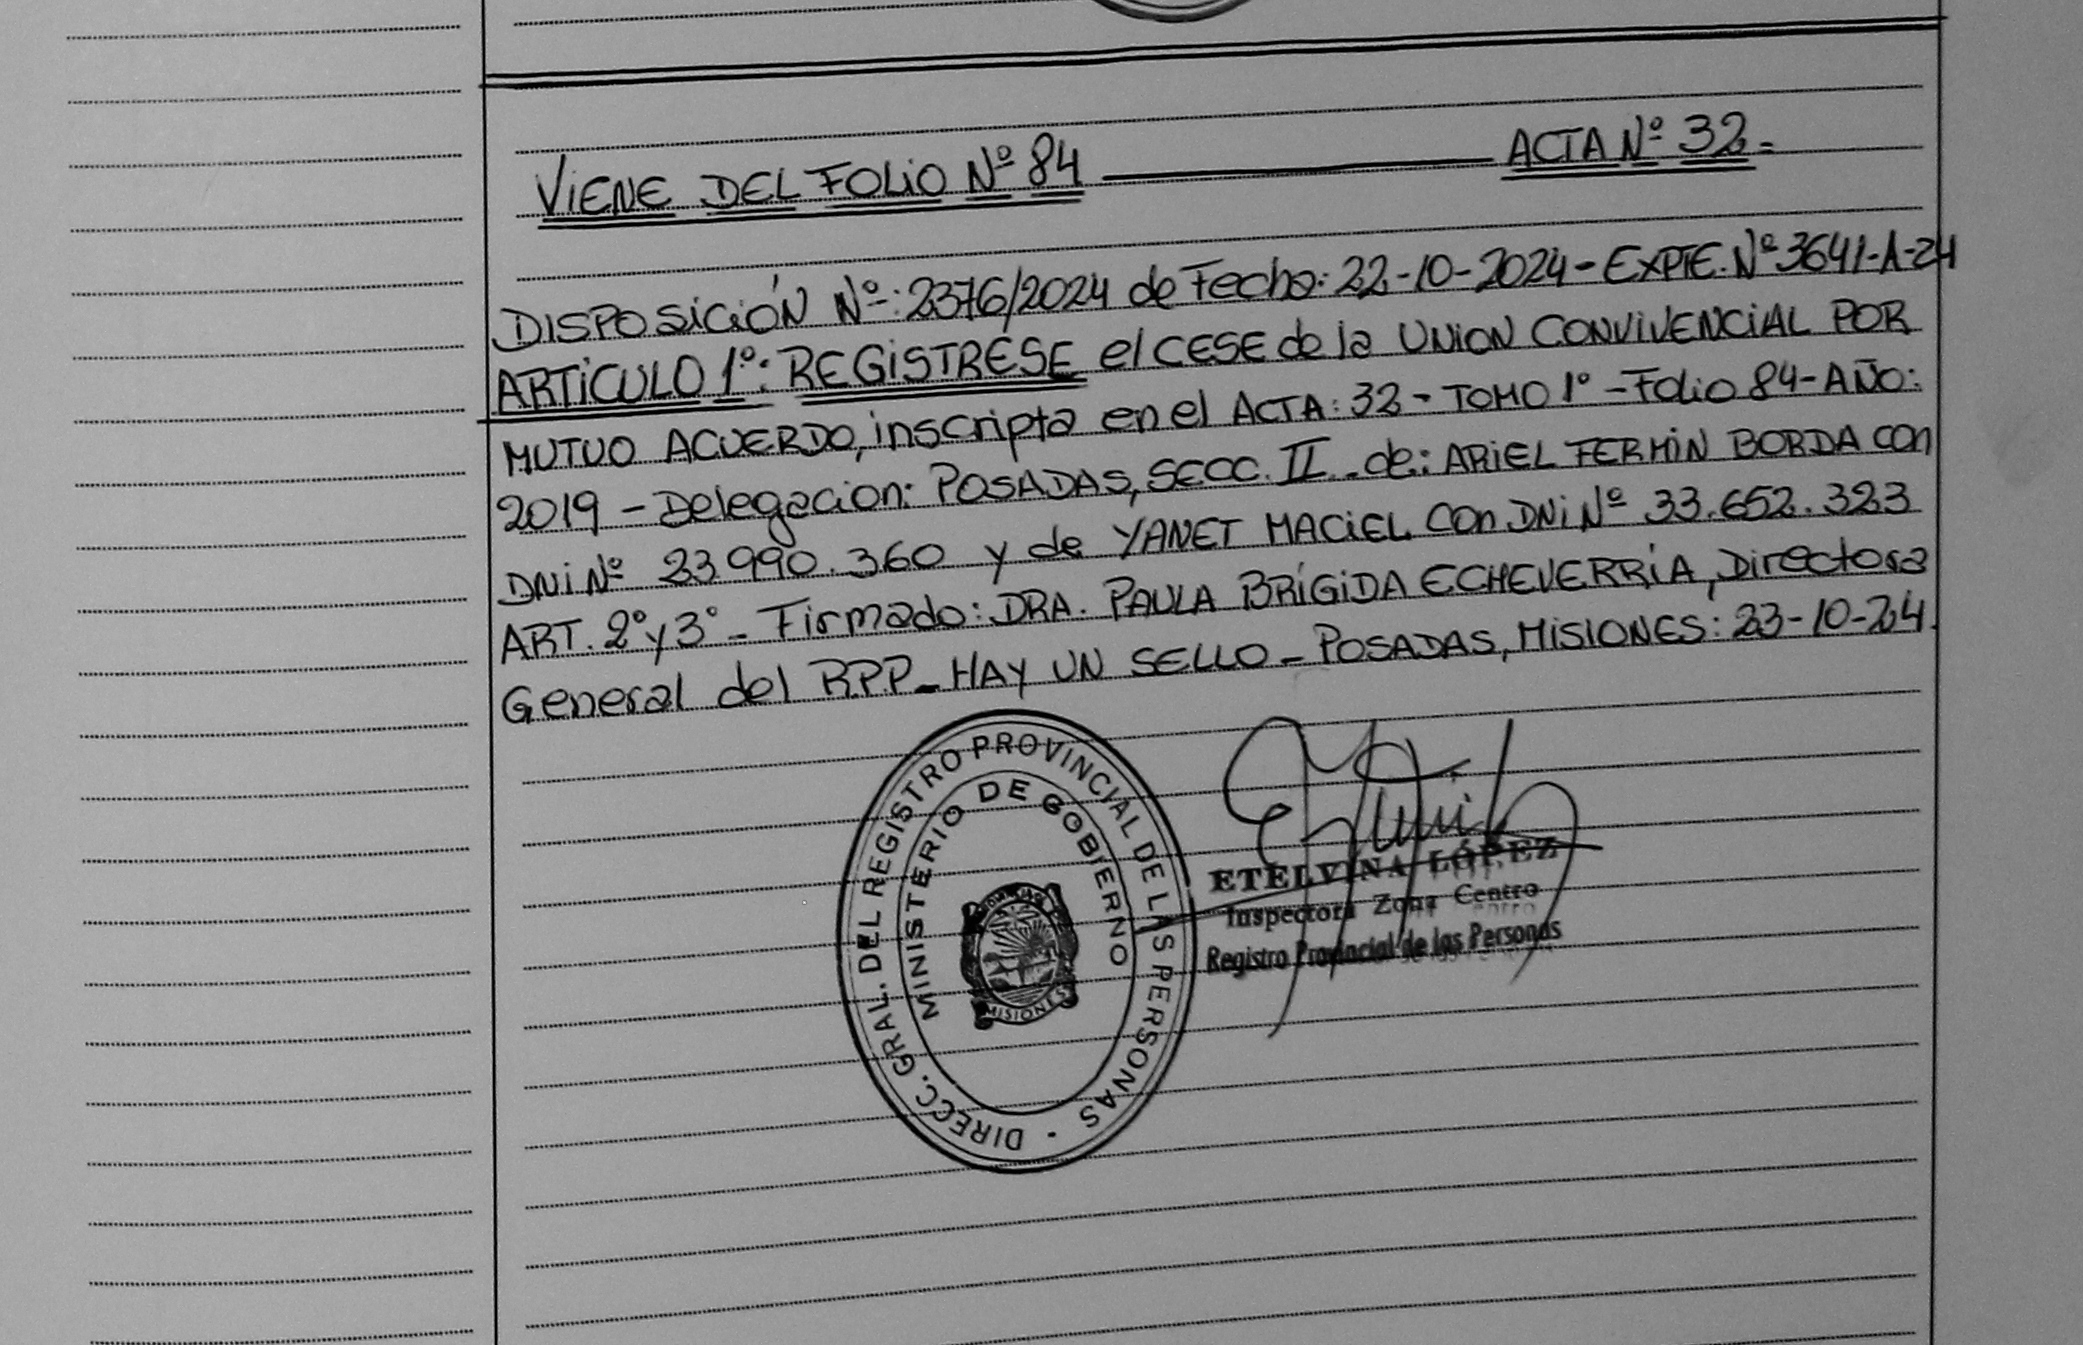 VIENE DEL FOLIO Nº 84 ACTA Nº 32.=
DISPOSICIÓN Nº: 2376/2024 de Fecha: 22-10-2024 - EXPTE. Nº 3641-A-24
ARTÍCULO 1º: REGISTRESE el CESE de la UNION CONVIVENCIAL POR
MUTUO ACUERDO, inscripta en el ACTA: 32 - TOMO 1º - Folio 84 - AÑO:
2019 - Delegacion: POSADAS, SECC. II - de: ARIEL FERMIN BORDA con
DNI Nº 23.990.360 y de YANET MACIEL con DNI Nº 33.652.323
ART. 2º y 3º - Firmado: DRA. PAULA BRÍGIDA ECHEVERRÍA, Directora
General del R.P.P. - HAY UN SELLO - POSADAS, MISIONES: 23-10-24.
DIRECC. GRAL. DEL REGISTRO PROVINCIAL DE LAS PERSONAS
MINISTERIO DE GOBIERNO
MISIONES
ETELVINA LÓPEZ
Inspectora Zona Centro
Registro Provincial de las Personas